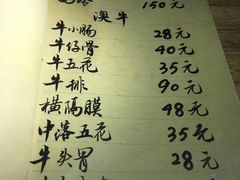 150元
澳牛
牛小肠 28元
牛仔骨 40元
牛五花 35元
牛排 90元
横隔膜 48元
中落五花 35元
牛头胃 28元